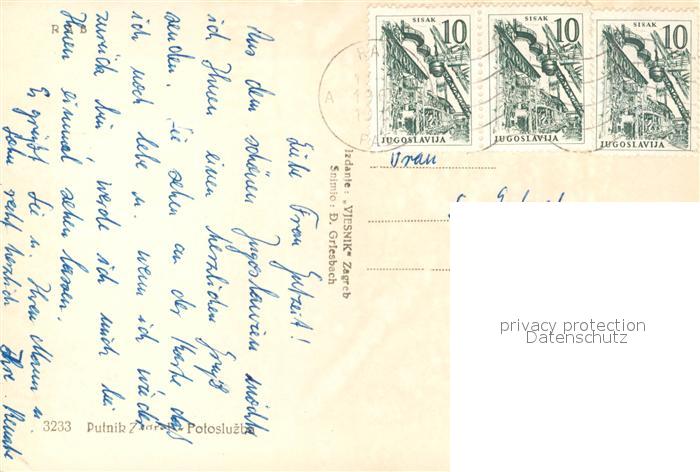 Liebe Frau Gutzeit!
Aus dem schönen Jugoslawien möchte
ich Ihnen einen herzlichen Gruß
senden. Sie sehen an der Karte daß
ich noch lebe u. wenn ich wieder
zurück bin werde ich mich bei
Ihnen einmal sehen lassen.
Es grüßt Sie u. Ihren Mann u.
recht herzlich Ihre Renate
3233 Putnik Zagreb - Fotoslužba
Izdanje: „VJESNIK" Zagreb
Snimio: Đ. Griesbach
SISAK 10
JUGOSLAVIJA
SISAK 10
JUGOSLAVIJA
SISAK 10
JUGOSLAVIJA
Frau
privacy protection
Datenschutz